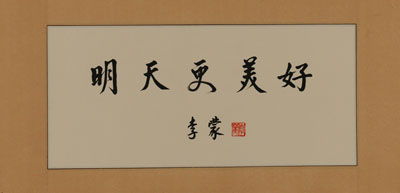 明天更美好
李蒙